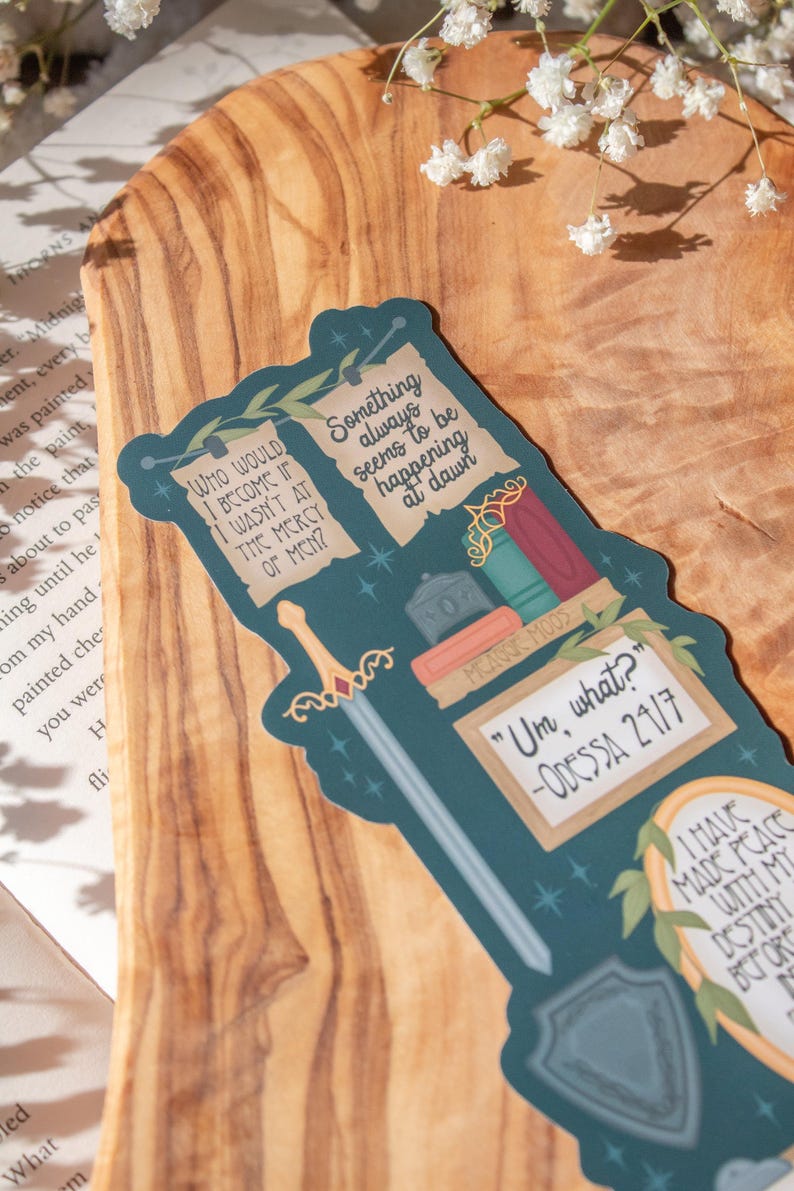 THORNS AN
"Midnig
ment, every b
was painted,
the paint,
to notice that
s about to pass
ning until he
om my hand
painted che
you were
H
fli
WHO WOULD
I BECOME IF
I WASN'T AT
THE MERCY
OF MEN?
Something
always
seems to be
happening
at dawn
MEAGGIE MOOS
"Um, what?"
-ODESSA 24/7
I HAVE
MADE PEACE
WITH MY
DESTINY
BEFORE
What